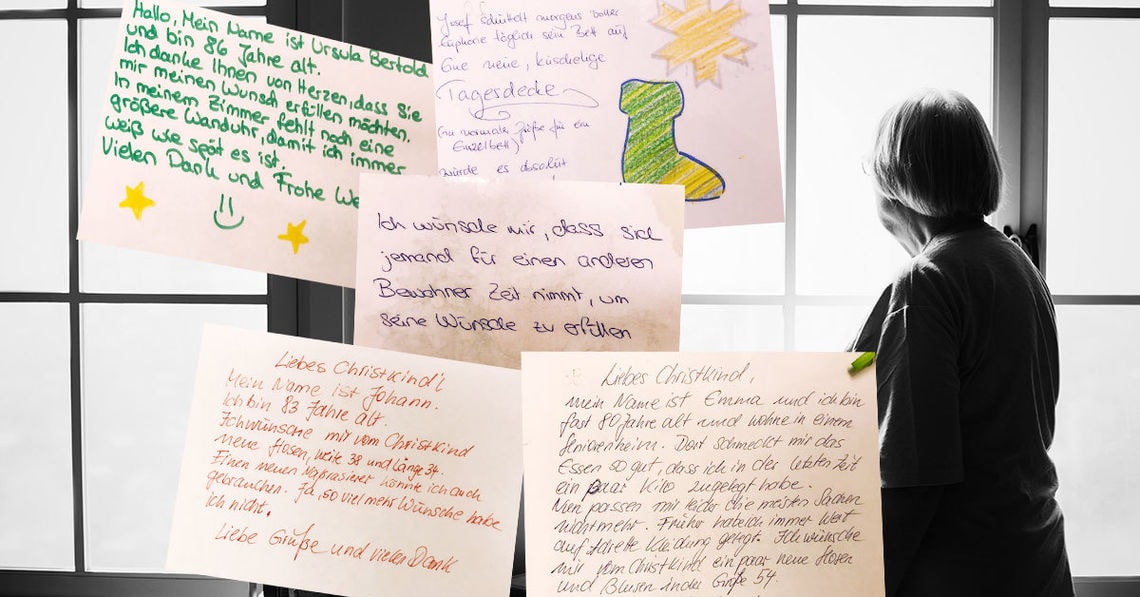 Hallo, Mein Name ist Ursula Bertold
und bin 86 Jahre alt.
Ich danke Ihnen von Herzen, dass Sie
mir meinen Wunsch erfüllen möchten.
In meinem Zimmer fehlt noch eine
größere Wanduhr, damit ich immer
weiß wie spät es ist.
Vielen Dank und Frohe We
Josef schüttelt morgens voller
Euphorie täglich sein Bett auf
Eine neine, kuschelige
Tagesdecke
(in normaler Größe für ein
Einzelbett)
würde es absolut
Ich wünsche mir, dass sich
jemand für einen anderen
Bewohner Zeit nimmt, um
seine Wünsche zu erfüllen
Liebes Christkind'l
Mein Name ist Johann.
Ich bin 83 Jahre alt.
Ich wünsche mir vom Christkind
neue Hosen, weite 38 und Länge 34.
Einen neuen Naßrasierer könnte ich auch
gebrauchen. Ja, so viel mehr Wünsche habe
ich nicht.
Liebe Grüße und vielen Dank
Liebes Christkind,
mein Name ist Emma und ich bin
fast 80 Jahre, alt und wohne in einem
Seniorenheim. Dort schmeckt mir das
Essen so gut, dass ich in der letzten Zeit
ein paar Kilo zugelegt habe.
Nun passen mir leider die meisten Sachen
nicht mehr. Früher habe ich immer Wert
auf adrette Kleidung gelegt. Ich wünsche
mir vom Christkind ein paar neue Hosen
und Blusen in der Größe 54.